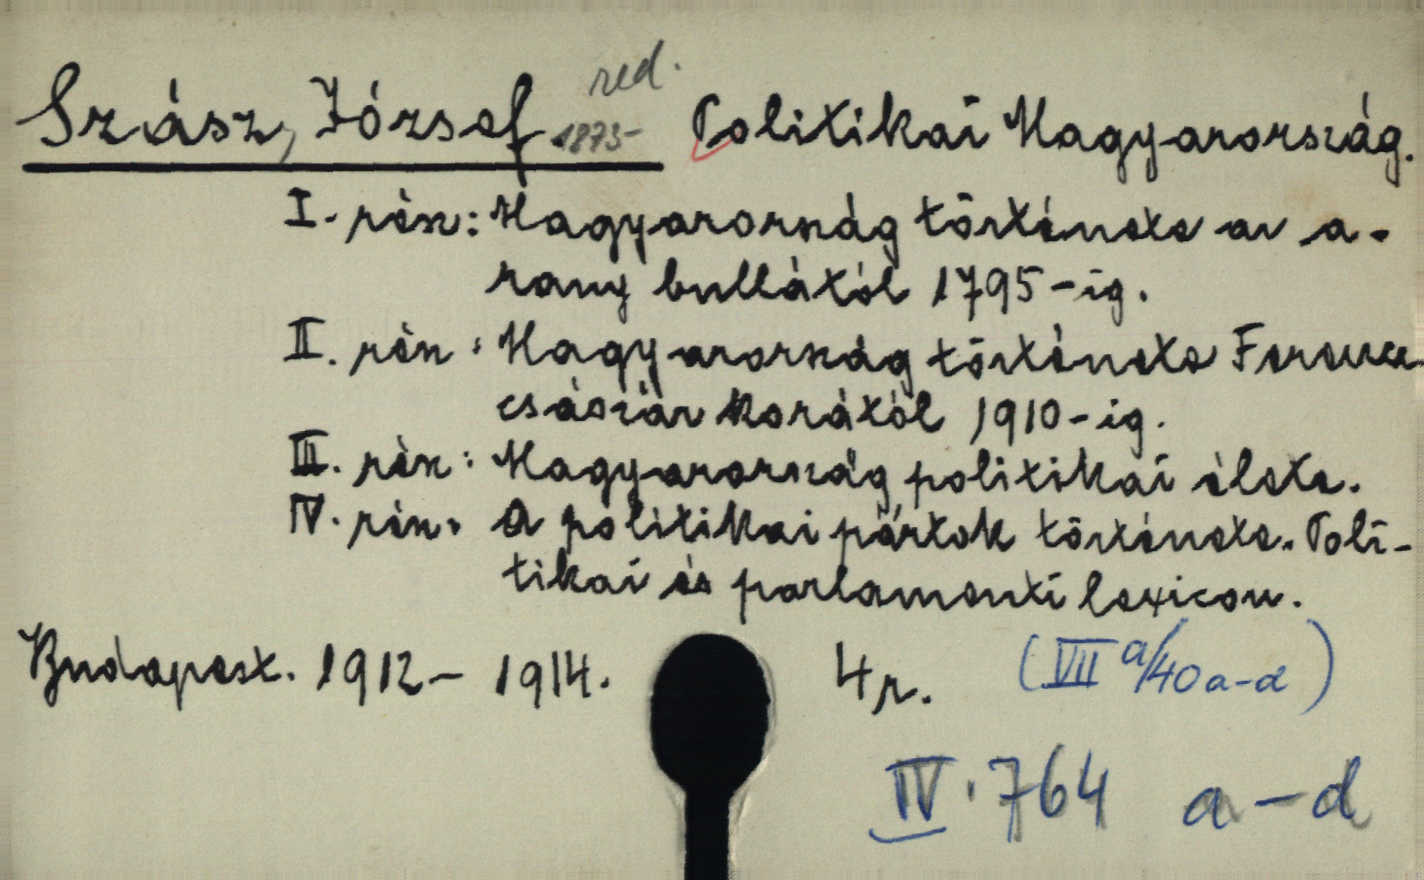 red.
Szász, József. 1873- Politikai Magyarország.
I. rész: Magyarország története az a-
rany bullától 1795-ig.
II. rész: Magyarország története Ferencz
császár korától 1910-ig.
III. rész: Magyarország politikai élete.
IV. rész: A politikai pártok története. Poli-
tikai és parlamenti lexicon.
Budapest. 1912- 1914. 4 r. (VII a/40 a-d)
IV. 764 a-d